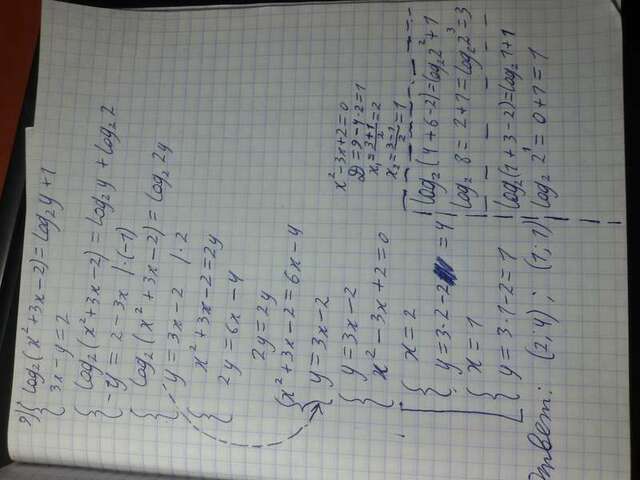 9) { log₂(x²+3x-2)=log₂y+1
3x-y=2
{ log₂(x²+3x-2)=log₂y+log₂2
-y=2-3x |·(-1)
{ log₂(x²+3x-2)=log₂2y
y=3x-2 |·2
{ x²+3x-2=2y
2y=6x-4
2y=2y
{ x²+3x-2=6x-4
y=3x-2
{ y=3x-2
x²-3x+2=0
[ { x=2
y=3·2-2=4
{ x=1
y=3·1-2=1
Ответ: (2;4); (1;1)
x²-3x+2=0
D=9-4·2=1
x₁=(3+1)/2=2
x₂=(3-1)/2=1
log₂(4+6-2)=log₂2²+1
log₂8=2+1=log₂2³=3
log₂(1+3-2)=log₂1+1
log₂2¹=0+1=1